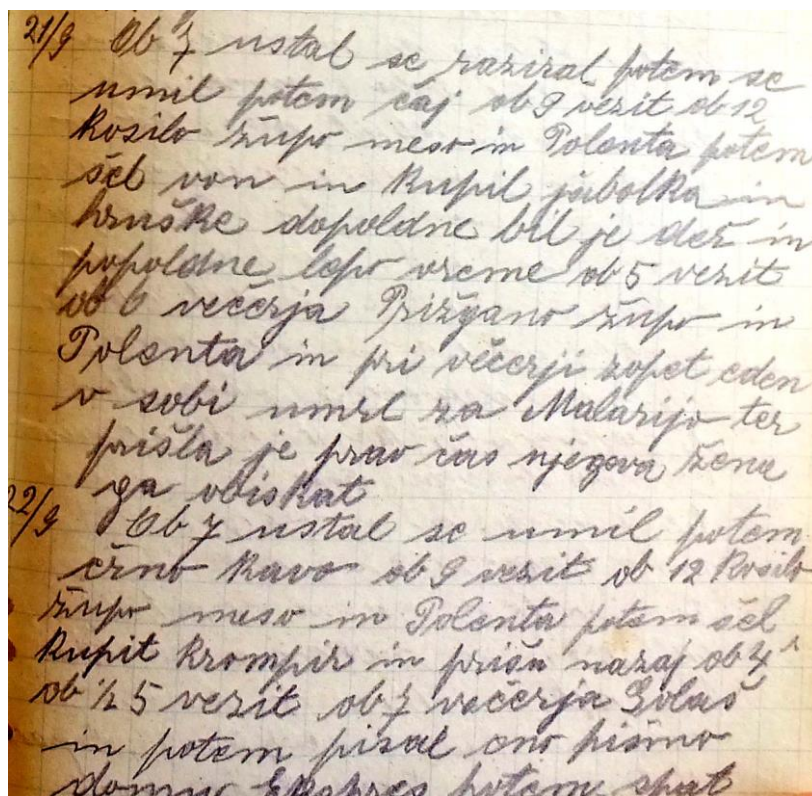 21/9 Ob 7 ustal se raziral potem se
umil potem čaj ob 9 vezit ob 12
Kosilo župo meso in Polenta potem
šel von in Kupil jabolka in
hruške dopoldne bil je dež in
popoldne lepo vreme ob 5 vezit
ob 6 večerja Prižgano župo in
Polenta in pri večerji zopet eden
v sobi umrl za Malarijo ter
prišla je prav čas njegova žena
ga obiskat
22/9 Ob 7 ustal se umil potem
črno Kavo ob 9 vezit ob 12 Kosilo
župo meso in Polenta potem šel
Kupit Krompir in prišu nazaj ob 4
ob 1/2 5 vezit ob 7 večerja Golaš
in potem pisal eno pismo
domu Ekspres potem spat